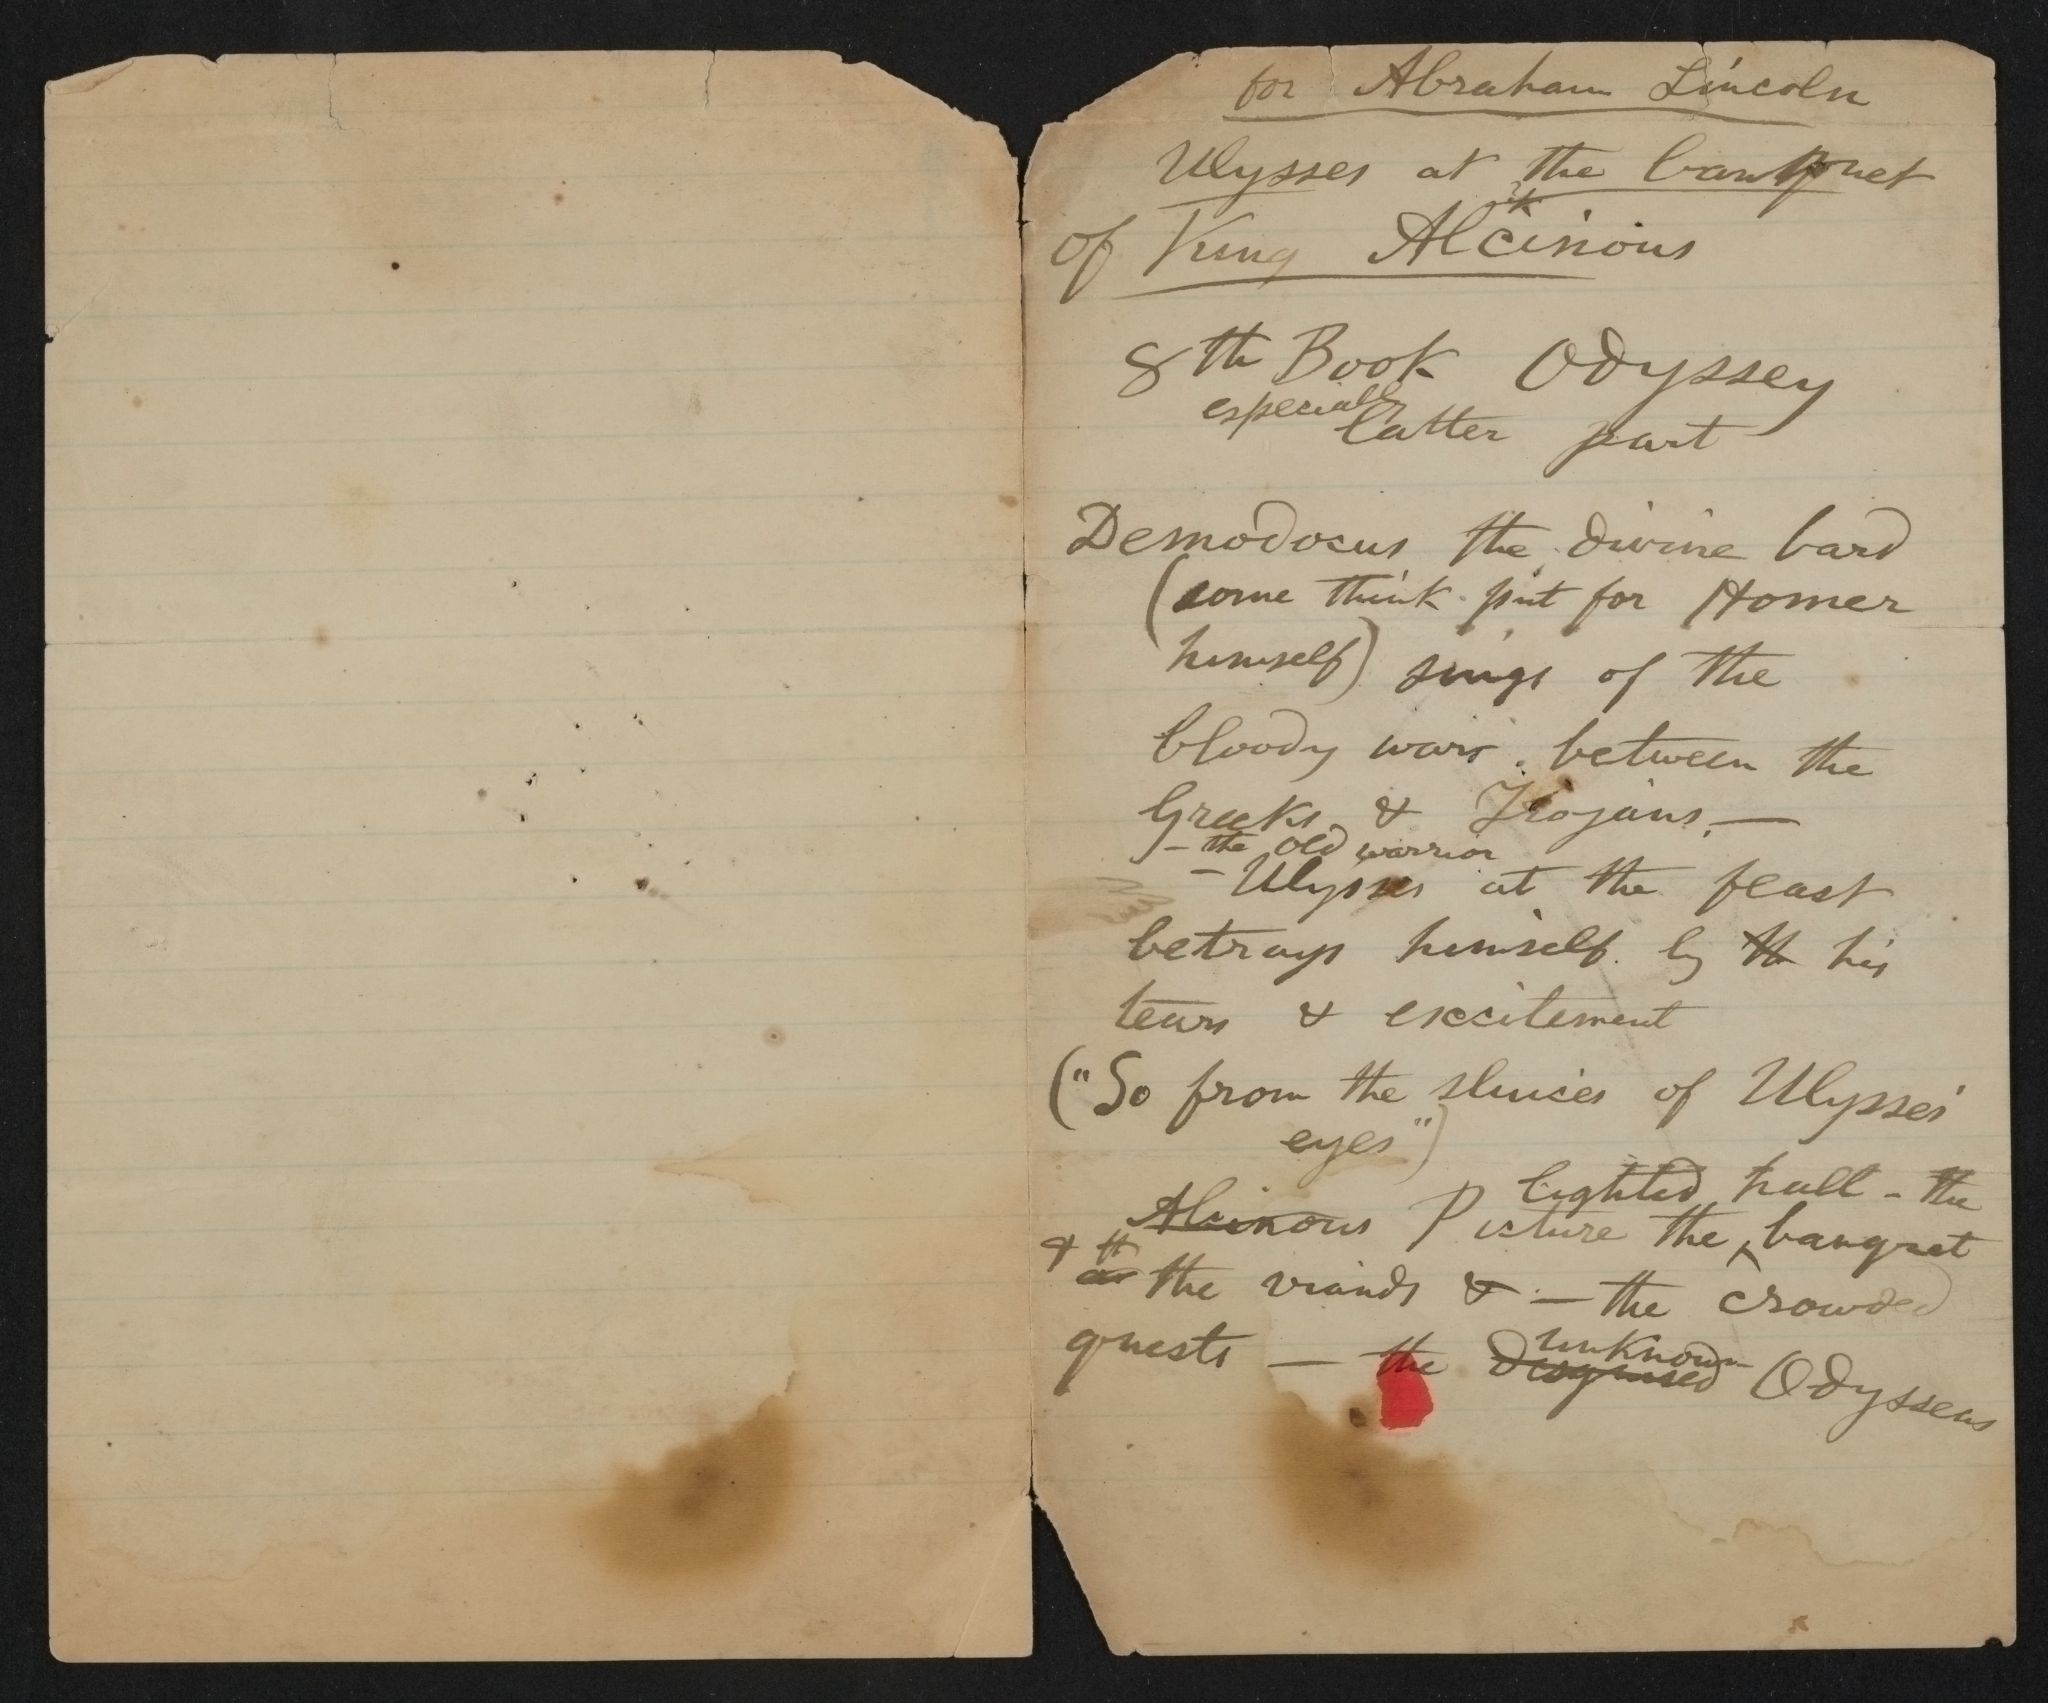 for Abraham Lincoln
Ulysses at the banquet
of King Alcinous
8th Book Odyssey
especially
latter part
Demodocus the divine bard
(some think put for Homer
himself) sings of the
bloody wars between the
Greeks & Trojans.—
– the old warrior
– Ulysses at the feast
betrays himself by th his
tears & excitement
("So from the sluices of Ulysses'
eyes")
lighted hall – the
Alcinous Picture the banquet
& th
the viands & — the crowded
guests — the disguised Odysseus
unknown